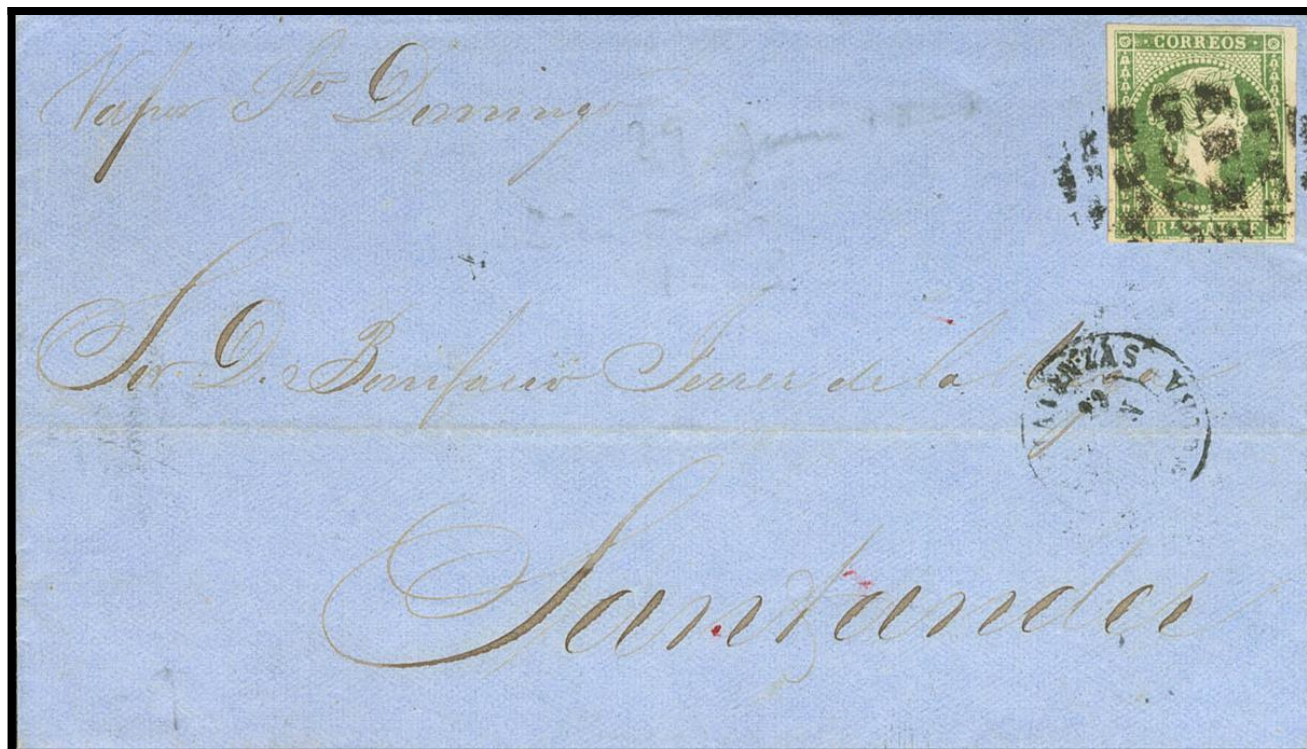 Vapor Sto Domingo
CORREOS
Sor. D. Bonifacio Ferrer de la Vega
MATANZAS
Santander